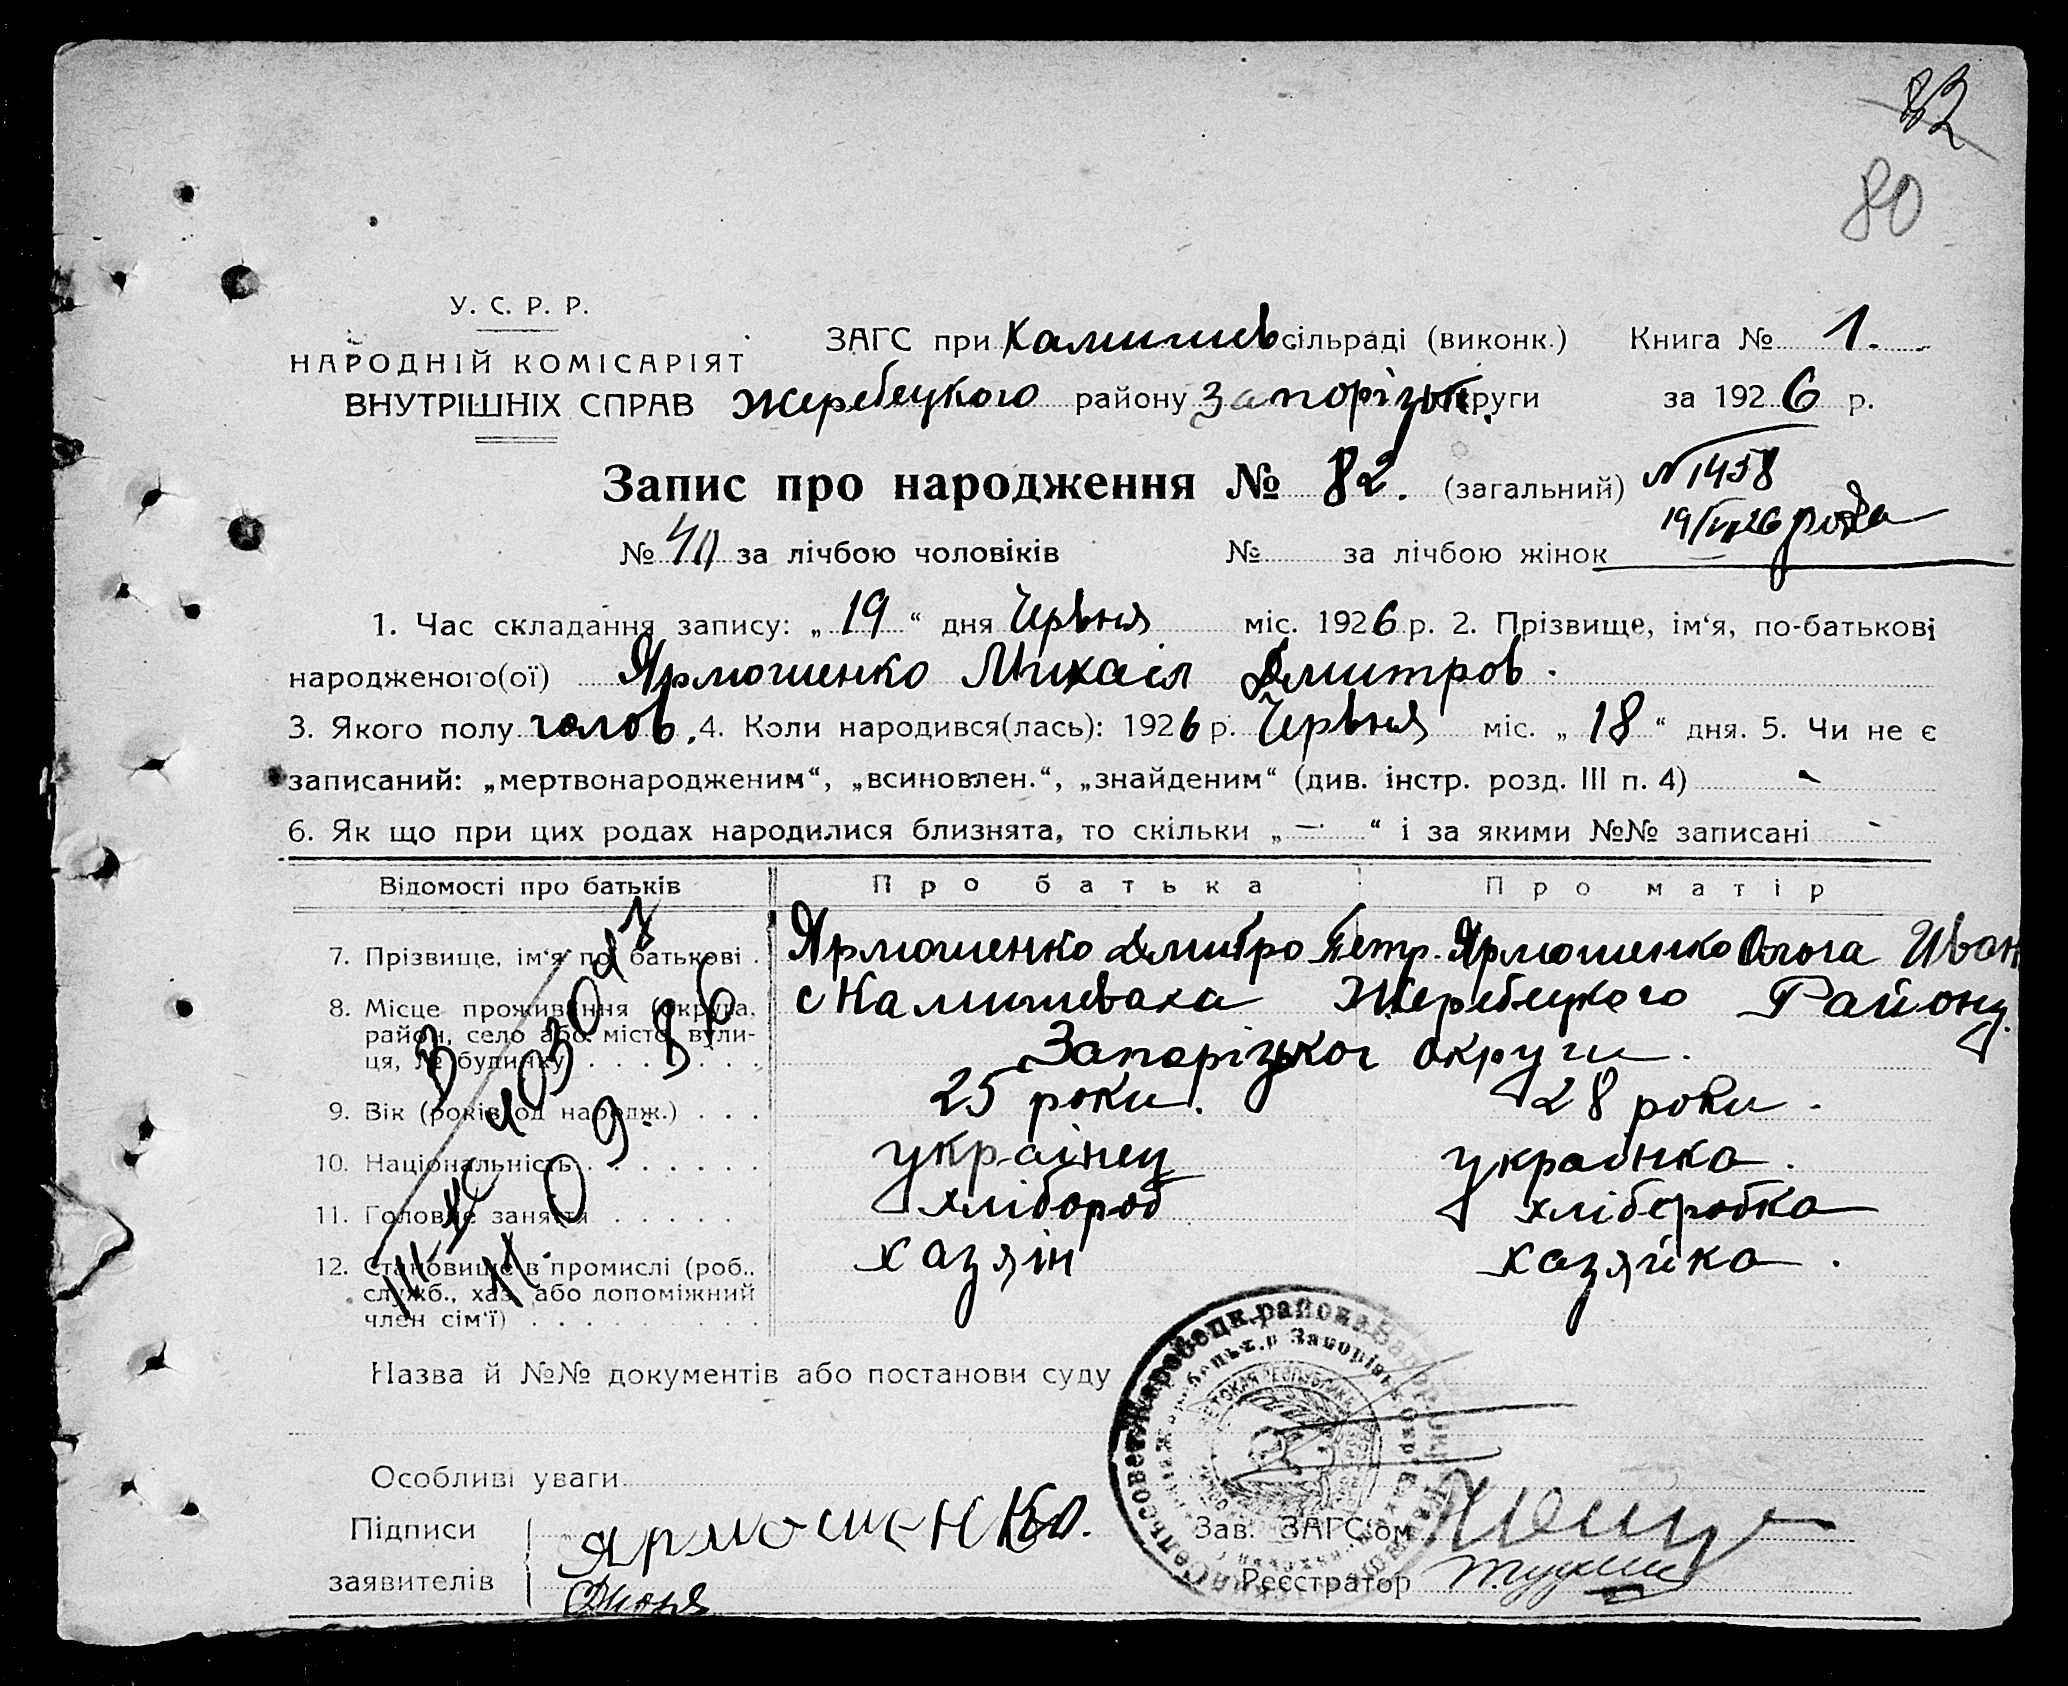 82
80
У. С. Р. Р.
НАРОДНІЙ КОМІСАРІЯТ
ВНУТРІШНІХ СПРАВ
ЗАГС при Камишев сільраді (виконк.) Книга № 1.
Жеребецкого району Запорізьк. округи за 1926 р.
Запис про народження № 82. (загальний) N 1458
19/VI 26 рода
№ 40 за лічбою чоловіків № за лічбою жінок
1. Час складання запису: „19“ дня Червня міс. 1926 р. 2. Прізвище, ім‘я, по-батькові
народженого(ої) Ярмошенко Михаіл Дмитров.
3. Якого полу чолов. 4. Коли народився(лась): 1926 р. Червня міс. „18“ дня. 5. Чи не є
записаний: „мертвонародженим“, „всиновлен.“, „знайденим“ (див. інстр. розд. III п. 4) -
6. Як що при цих родах народилися близнята, то скільки „—“ і за якими №№ записані -
Відомості про батьків Про батька Про матір
7. Прізвище, ім‘я по батькові . Ярмошенко Дмитро Петр. Ярмошенко Ольга Иван
8. Місце проживання (округа, с Камишеваха Жеребецкого Району.
район, село або місто, вули-
ця, № будинку) . . . . Запорізької округи.
9. Вік (років од народж.) . . . 25 роки. 28 роки.
10. Національність . . . . . . українец українка.
11. Головне заняття . . . . . хлібороб хліборобка
12. Становище в промислі (роб., хазяін хазяйка.
служб., хаз. або допоміжний
член сім‘ї) . . . . . . . . .
Назва й №№ документів або постанови суду
Особливі уваги
Підписи Ярмошенко. Зав. ЗАГС‘ом
заявителів Реєстратор